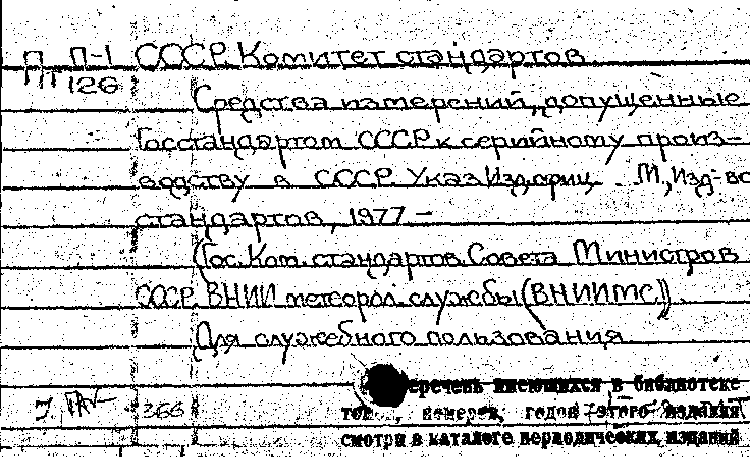 П П-1 СССР. Комитет стандартов.
126
Средства измерений, допущенные
Госстандартом СССР к серийному произ-
водству в СССР. Указ. Изд. ориц. М., Изд-во
стандартов, 1977 –
(Гос. Ком. стандартов Совета Министров
СССР. ВНИИ метеорол. службы (ВНИИМС)).
Для служебного пользования
еречень имеющихся в библиотеке
366 то, номеров, годов этого издания
смотри в каталоге периодических изданий